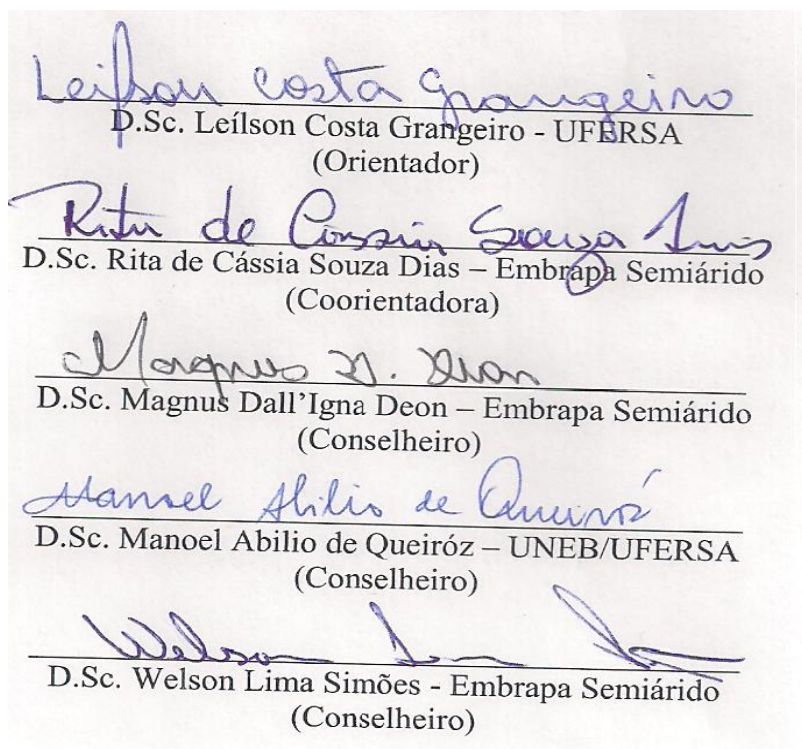 Leilson Costa Grangeiro
D.Sc. Leílson Costa Grangeiro - UFERSA
(Orientador)
Rita de Cássia Souza Dias
D.Sc. Rita de Cássia Souza Dias – Embrapa Semiárido
(Coorientadora)
Magnus D. Deon
D.Sc. Magnus Dall'Igna Deon – Embrapa Semiárido
(Conselheiro)
Manoel Abilio de Queiróz
D.Sc. Manoel Abilio de Queiróz – UNEB/UFERSA
(Conselheiro)
Welson
D.Sc. Welson Lima Simões - Embrapa Semiárido
(Conselheiro)